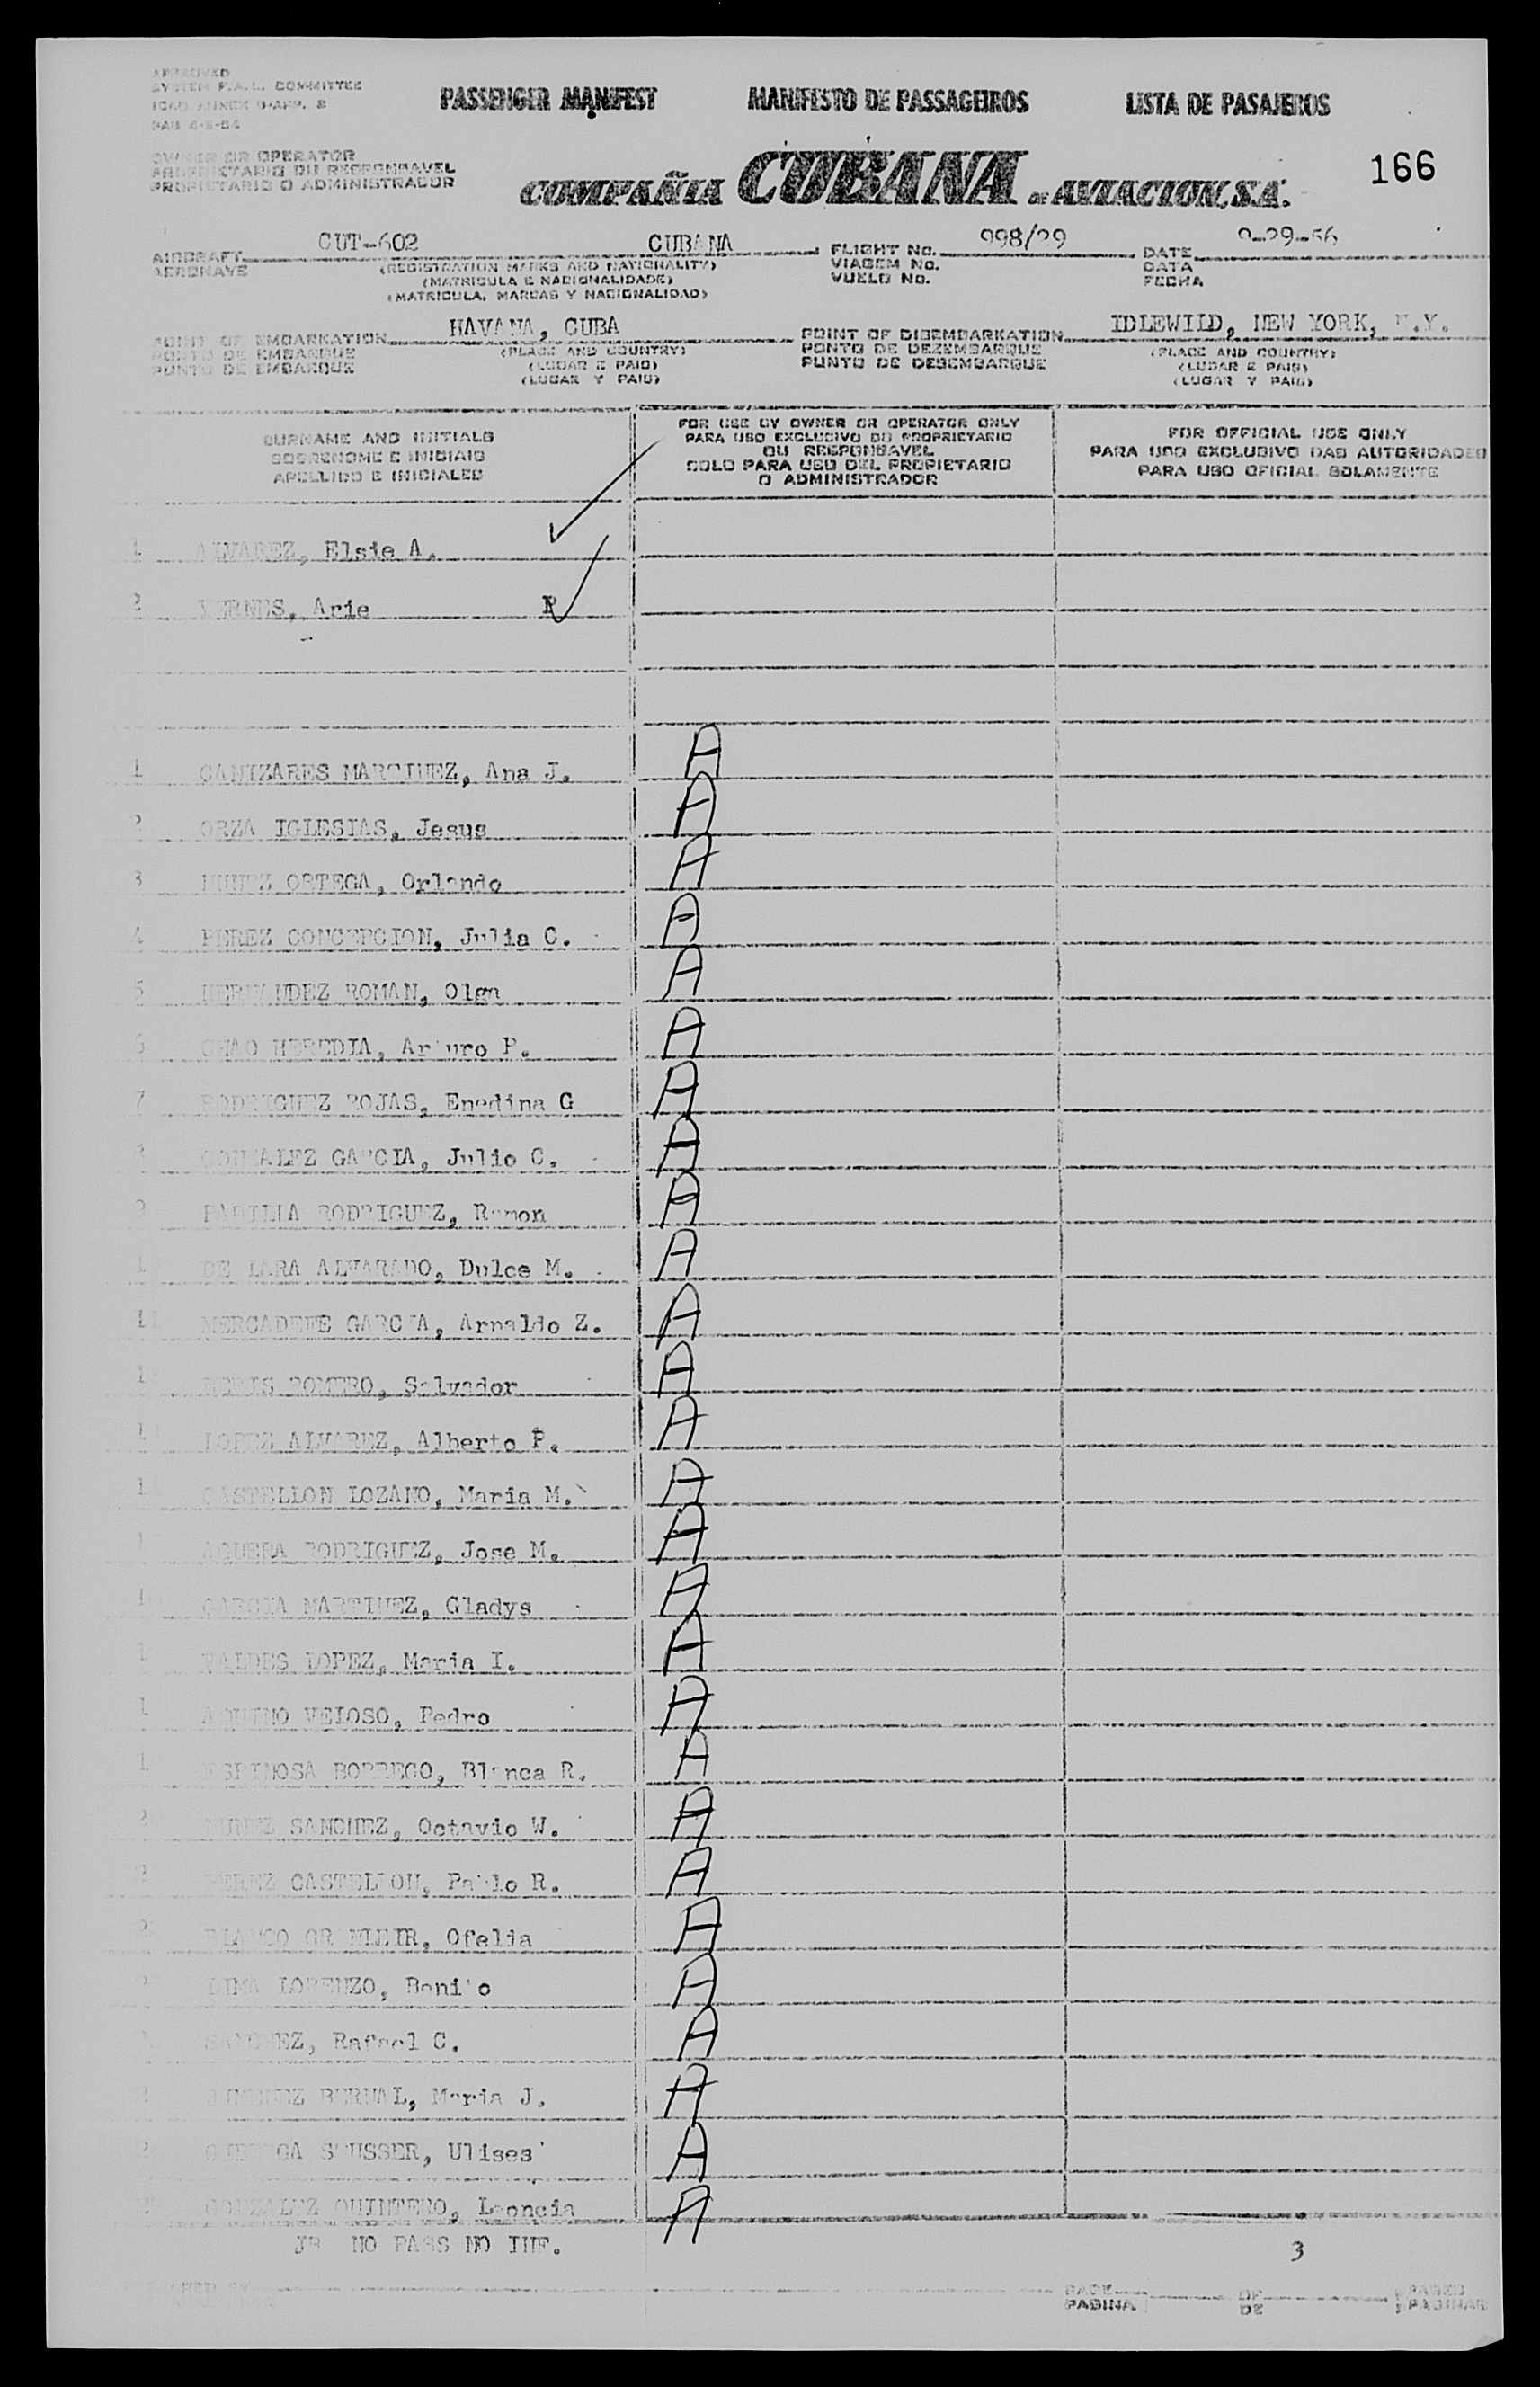 APPROVED
SYSTEM F.A.L. COMMITTEE
ICAO ANNEX 9-APP. 2
PASSENGER MANIFEST MANIFESTO DE PASSAGEIROS LISTA DE PASAJEROS
OWNER OR OPERATOR
PROPRIETARIO OU RESPONSAVEL
PROPIETARIO O ADMINISTRADOR
COMPAÑIA CUBANA DE AVIACION, S.A.
166
AIRCRAFT CUT-602 CUBANA FLIGHT No. 998/29 DATE 9-29-56
AERONAVE (REGISTRATION MARKS AND NATIONALITY) VIAGEM No. DATA
(MATRICULA E NACIONALIDADE) VUELO No. FECHA
(MATRICULA, MARCAS Y NACIONALIDAD)
POINT OF EMBARKATION HAVANA, CUBA POINT OF DISEMBARKATION IDLEWILD, NEW YORK, N.Y.
PONTO DE EMBARQUE (PLACE AND COUNTRY) PONTO DE DEZEMBARQUE (PLACE AND COUNTRY)
PUNTO DE EMBARQUE (LUGAR E PAIS) PUNTO DE DESEMBARQUE (LUGAR E PAIS)
(LUGAR Y PAIS) (LUGAR Y PAIS)
SURNAME AND INITIALS
SOBRENOME E INICIAIS
APELLIDO E INICIALES
FOR USE BY OWNER OR OPERATOR ONLY
PARA USO EXCLUSIVO DO PROPRIETARIO
OU RESPONSAVEL
SOLO PARA USO DEL PROPIETARIO
O ADMINISTRADOR
FOR OFFICIAL USE ONLY
PARA USO EXCLUSIVO DAS AUTORIDADES
PARA USO OFICIAL SOLAMENTE
1 ALVAREZ, Elsie A.
2 Arie R
1 CANIZARES MARTINEZ, Ana J. A
2 ORZA IGLESIAS, Jesus A
3 NUNEZ ORTEGA, Orlando A
4 PEREZ CONCEPCION, Julia C. A
5 HERNANDEZ ROMAN, Olga A
6 HEREDIA, Arturo P. A
7 RODRIGUEZ ROJAS, Enedina G A
GONZALEZ GARCIA, Julio C. A
9 PADILLA RODRIGUEZ, Ramon A
1 DE LARA ALVARADO, Dulce M. A
11 GARCIA, Arnaldo Z. A
1 ROMERO, Salvador A
1 LOPEZ ALVAREZ, Alberto P. A
1 CASTELLON LOZANO, Maria M. A
1 AGUERA RODRIGUEZ, Jose M. A
1 GARCIA MARTINEZ, Gladys A
1 VALDES LOPEZ, Maria I. A
1 AQUINO VELOSO, Pedro A
1 ESPINOSA BORREGO, Blanca R. A
SANCHEZ, Octavio W. A
PEREZ CASTELLON, Pablo R. A
BLANCO Ofelia A
LIMA LORENZO, Benito A
SANCHEZ, Rafael C. A
BERNAL, Maria J. A
Ulises A
GONZALEZ QUINTERO, Leoncia A
NO PASS NO INF.
3
PAGE OF PAGES
PAGINA DE PAGINAS